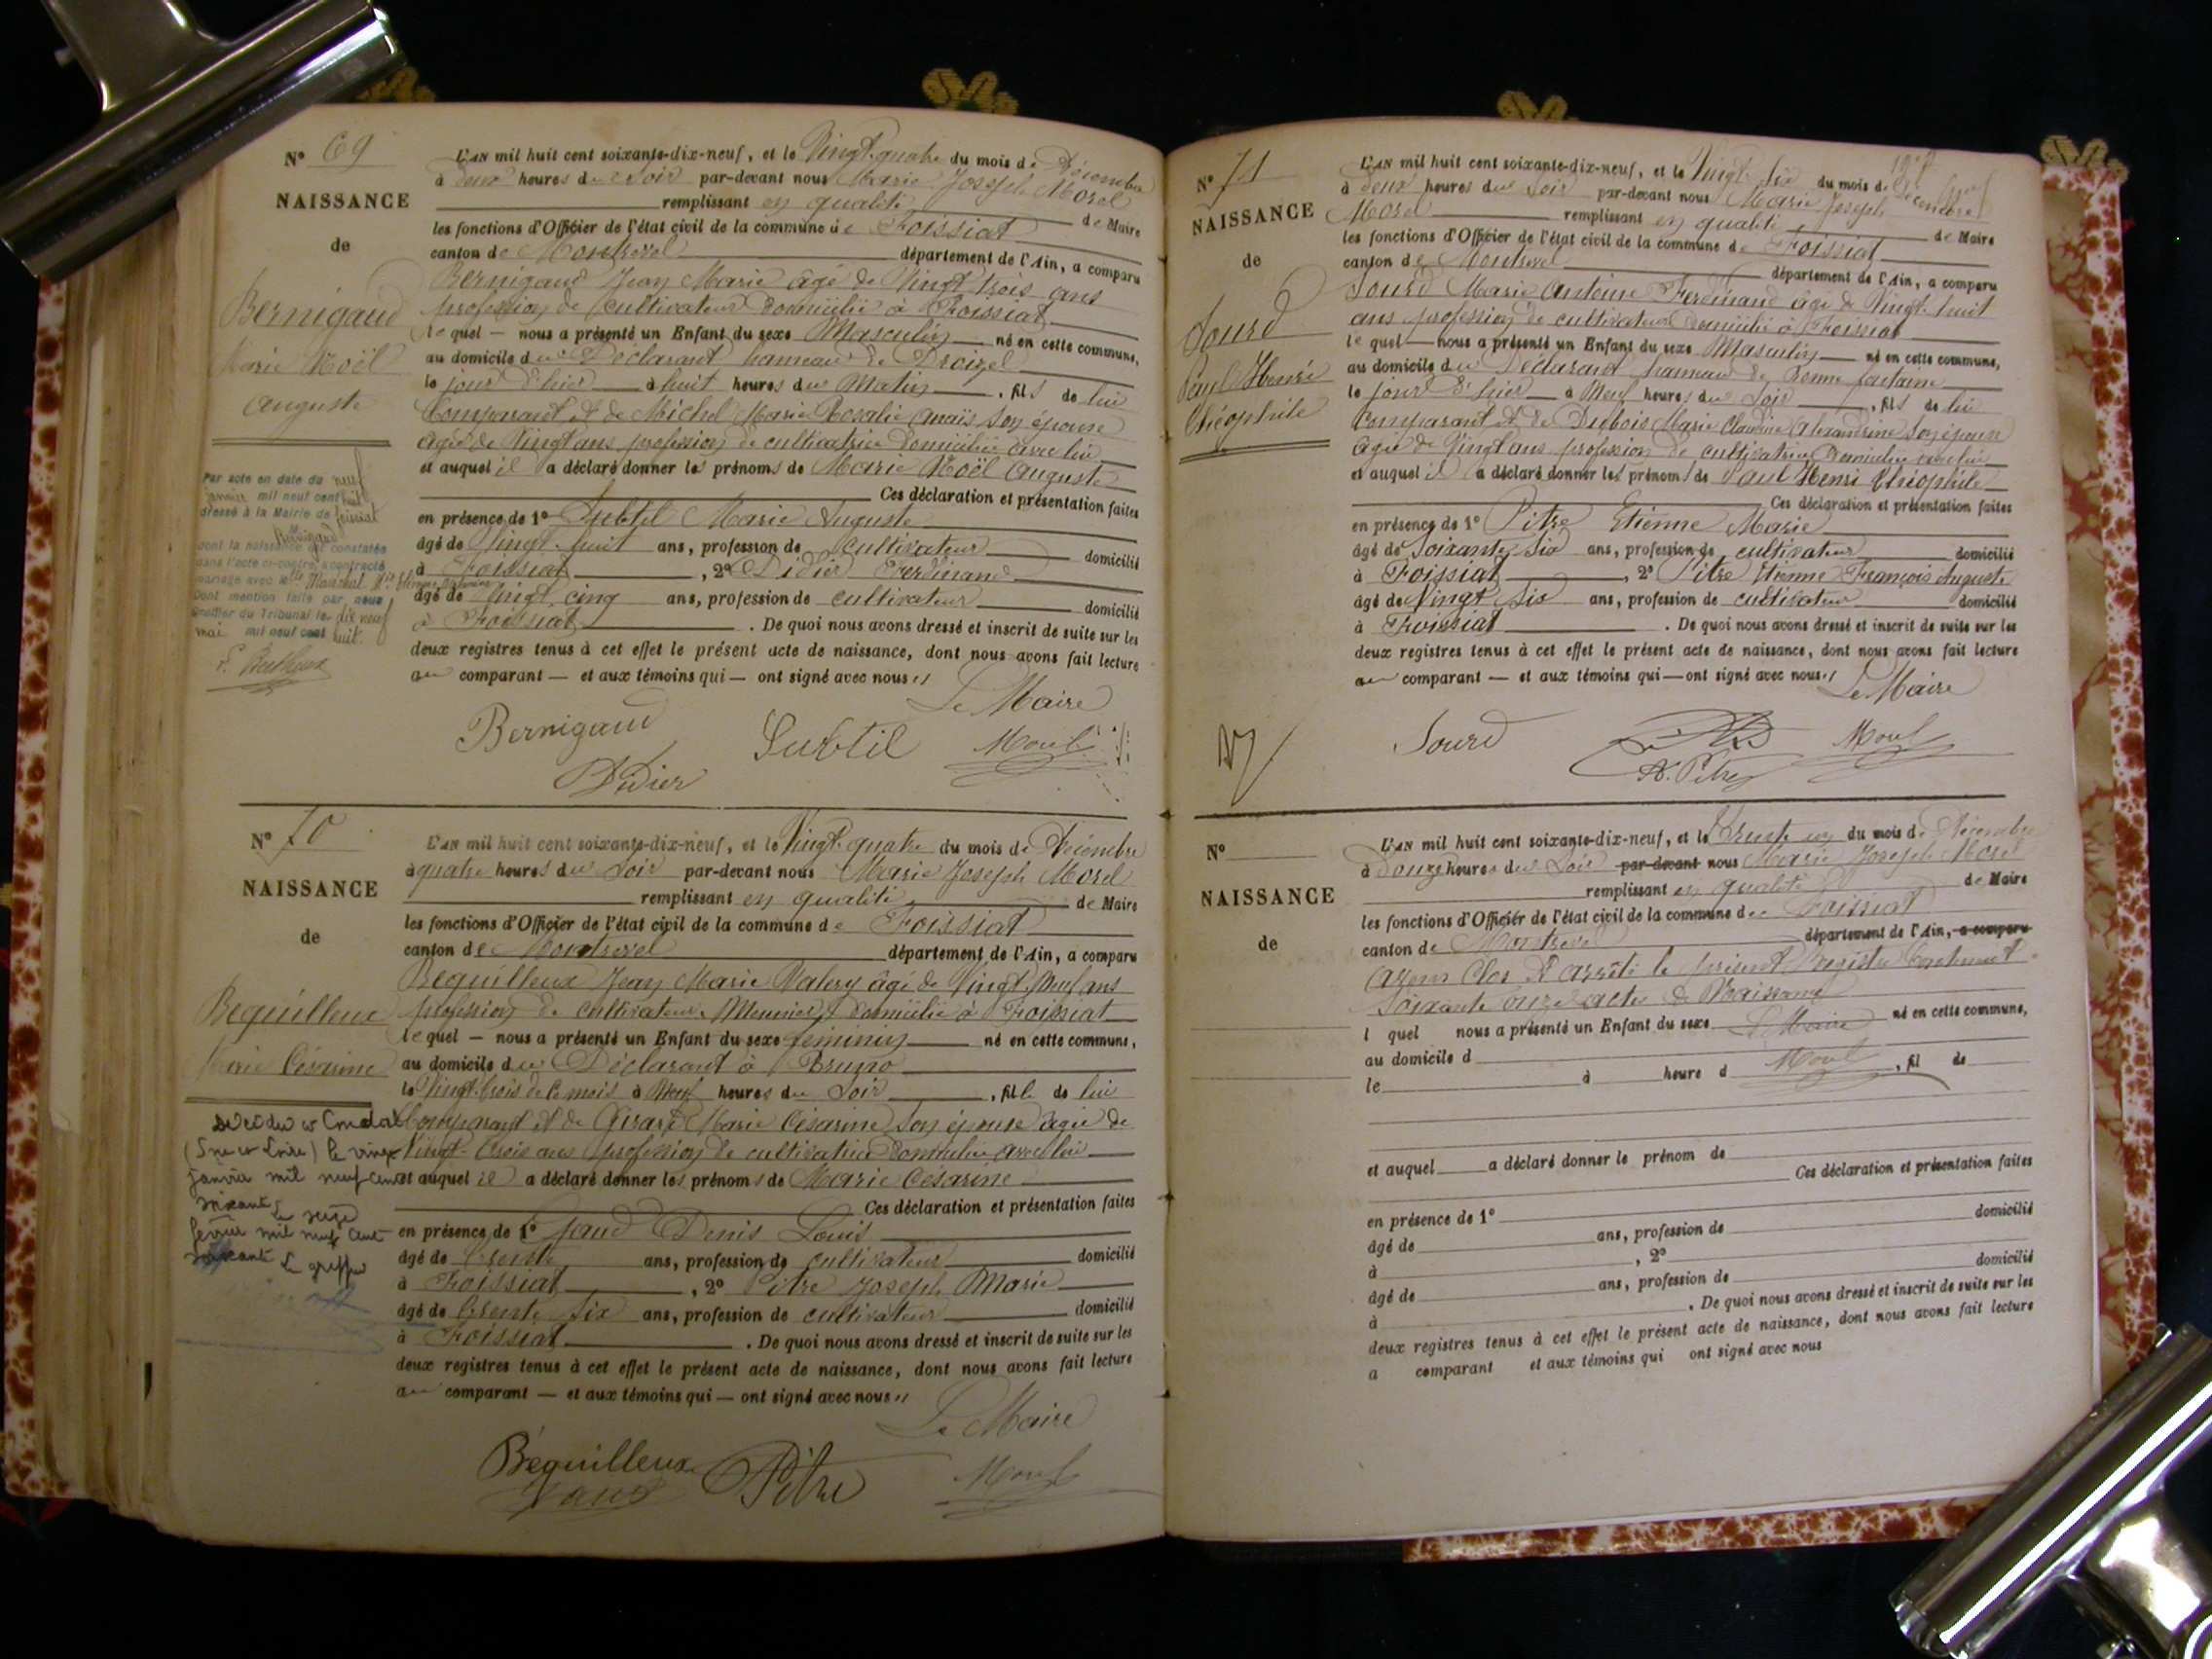 N° 69
NAISSANCE
de
Bernigaud
Marie Noël
Auguste
Par acte en date du neuf
janvier mil neuf cent huit
dressé à la Mairie de Foissiat
Bernigaud
dont la naissance est constatée
dans l'acte ci-contre, a contracté
mariage avec
Dont mention faite par nous
Greffier du Tribunal le dix neuf
mai mil neuf cent huit
L'AN mil huit cent soixante-dix-neuf, et le Vingt quatre du mois de Décembre
à deux heures du Soir par-devant nous Marie Joseph Morel
remplissant en qualité de Maire
les fonctions d'Officier de l'état civil de la commune de Foissiat
canton de Montrevel département de l'Ain, a comparu
Bernigaud Jean Marie âgé de Vingt trois ans
profession de cultivateur domicilié à Foissiat
le quel — nous a présenté un Enfant du sexe Masculin né en cette commune,
au domicile du Déclarant hameau de
le jour d'hier à huit heures du Matin, fils de lui
Comparant et de Michel Marie Rosalie Anaïs son épouse
âgée de Vingt ans profession de cultivatrice domiciliée avec lui
et auquel il a déclaré donner les prénoms de Marie Noël Auguste
Ces déclaration et présentation faites
en présence de 1° Subtil Marie Auguste
âgé de Vingt huit ans, profession de cultivateur domicilié
à Foissiat, 2° Didier Ferdinand
âgé de Vingt cinq ans, profession de cultivateur domicilié
à Foissiat. De quoi nous avons dressé et inscrit de suite sur les
deux registres tenus à cet effet le présent acte de naissance, dont nous avons fait lecture
au comparant — et aux témoins qui — ont signé avec nous
Le Maire
Bernigaud Subtil Morel
Didier
N° 70
NAISSANCE
de
Bequilleux
Marie Césarine
Décédée à Condal
(Sne et Loire) le vingt
janvier mil neuf cent
soixante le seize
février mil neuf cent
soixante Le greffier
L'AN mil huit cent soixante-dix-neuf, et le Vingt quatre du mois de Décembre
à quatre heures du Soir par-devant nous Marie Joseph Morel
remplissant en qualité de Maire
les fonctions d'Officier de l'état civil de la commune de Foissiat
canton de Montrevel département de l'Ain, a comparu
Bequilleux Jean Marie Valery âgé de Vingt Neuf ans
profession de cultivateur Meunier domicilié à Foissiat
le quel — nous a présenté un Enfant du sexe féminin né en cette commune,
au domicile du Déclarant à
le Vingt trois de ce mois à Neuf heures du Soir, fille de lui
Comparant et de Girard Marie Césarine son épouse âgée de
Vingt trois ans profession de cultivatrice domiciliée avec lui
et auquel il a déclaré donner les prénoms de Marie Césarine
Ces déclaration et présentation faites
en présence de 1° Denis Louis
âgé de trente ans, profession de cultivateur domicilié
à Foissiat, 2° Pitre Joseph Marie
âgé de trente six ans, profession de cultivateur domicilié
à Foissiat. De quoi nous avons dressé et inscrit de suite sur les
deux registres tenus à cet effet le présent acte de naissance, dont nous avons fait lecture
au comparant — et aux témoins qui — ont signé avec nous
Le Maire
Béquilleux Pitre Morel
N° 71
NAISSANCE
de
Sourd
Paul Henri
Théophile
L'AN mil huit cent soixante-dix-neuf, et le Vingt Six du mois de Décembre
à deux heures du Soir par-devant nous Marie Joseph
Morel remplissant en qualité de Maire
les fonctions d'Officier de l'état civil de la commune de Foissiat
canton de Montrevel département de l'Ain, a comparu
Sourd Marie Antoine Ferdinand âgé de Vingt huit
ans profession de cultivateur domicilié à Foissiat
le quel — nous a présenté un Enfant du sexe Masculin né en cette commune,
au domicile du Déclarant hameau de Bonne fontaine
le jour d'hier à Neuf heures du Soir, fils de lui
Comparant et de Dubois Marie Claudine Alexandrine son épouse
âgée de Vingt ans profession de cultivatrice domiciliée avec lui
et auquel il a déclaré donner les prénoms de Paul Henri Théophile
Ces déclaration et présentation faites
en présence de 1° Pitre Etienne Marie
âgé de Soixante Six ans, profession de cultivateur domicilié
à Foissiat, 2° Pitre Etienne François Auguste
âgé de Vingt Six ans, profession de cultivateur domicilié
à Foissiat. De quoi nous avons dressé et inscrit de suite sur les
deux registres tenus à cet effet le présent acte de naissance, dont nous avons fait lecture
au comparant — et aux témoins qui — ont signé avec nous
Le Maire
Sourd Morel
A. Pitre
N°
NAISSANCE
de
L'AN mil huit cent soixante-dix-neuf, et le Trente un du mois de Décembre
à Douze heures du Soir par-devant nous Marie Joseph Morel
remplissant en qualité de Maire
les fonctions d'Officier de l'état civil de la commune de Foissiat
canton de Montrevel département de l'Ain, a comparu
Avons Clos et arrêté le présent Registre Contenant
Soixante onze actes de Naissance
l quel nous a présenté un Enfant du sexe Le Maire né en cette commune,
au domicile d
le à heure d Morel, fil de
et auquel a déclaré donner le prénom de
Ces déclaration et présentation faites
en présence de 1°
âgé de ans, profession de domicilié
à , 2°
âgé de ans, profession de domicilié
à . De quoi nous avons dressé et inscrit de suite sur les
deux registres tenus à cet effet le présent acte de naissance, dont nous avons fait lecture
a comparant et aux témoins qui ont signé avec nous